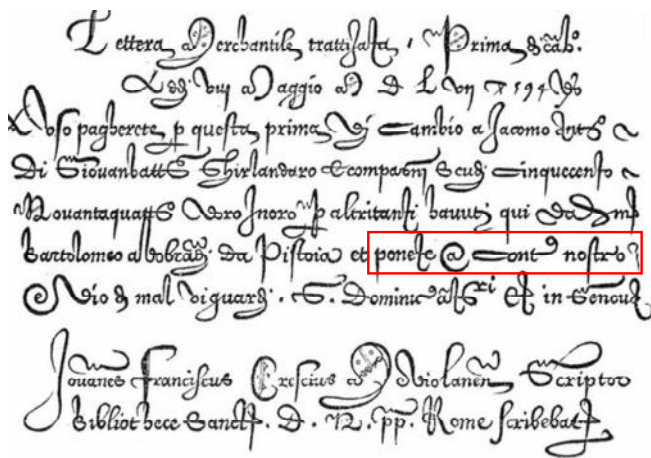 Lettera Merchantile, trattizata, Prima, &
Adj. viij Maggio M D L vij 594
paghereta, p questa prima, Di Cambio a Jacomo
Di Giouanbatta Ghirlandaro & compagni Scudi Cinquecento
Nouantaquatto Doro Inoro p altritanti hauuti qui Da
Bartolomeo da Pistoia et ponete @ Conto nostro
Dio Di mal ui guardi. S. Dominic et in Genoua
Jouanes Franciscus Crescius Miolanen, Scriptor
Bibliothece Sanct. D. N. pp. Rome scribebat